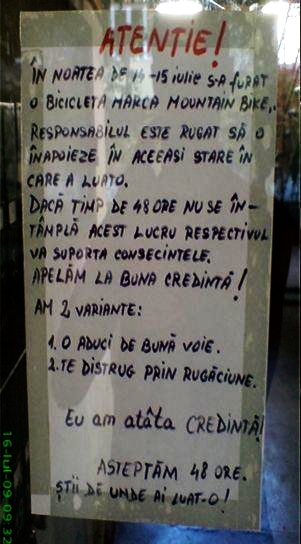 ATENTIE!
ÎN NOATEA DE 14-15 iulie s-a furat
O BICICLETA MARCA MOUNTAIN BIKE,.
RESPONSABILUL ESTE RUGAT SĂ O
ÎNAPOIEZE ÎN ACEEASI STARE ÎN
CARE A LUATO.
DACĂ TIMP DE 48 ORE NU SE ÎN-
TÂMPLĂ ACEST LUCRU RESPECTIVUL
VA SUPORTA CONSECINTELE.
APELĂM LA BUNA CREDINTĂ!
AM 2 VARIANTE:
1. O ADUCI DE BUNĂ VOIE.
2. TE DISTRUG PRIN RUGĂCIUNE.
Eu am atâta CREDINTĂ!
ASTEPTĂM 48 ORE.
ȘTII DE UNDE AI LUAT-O!
16-Iul-09 09:32